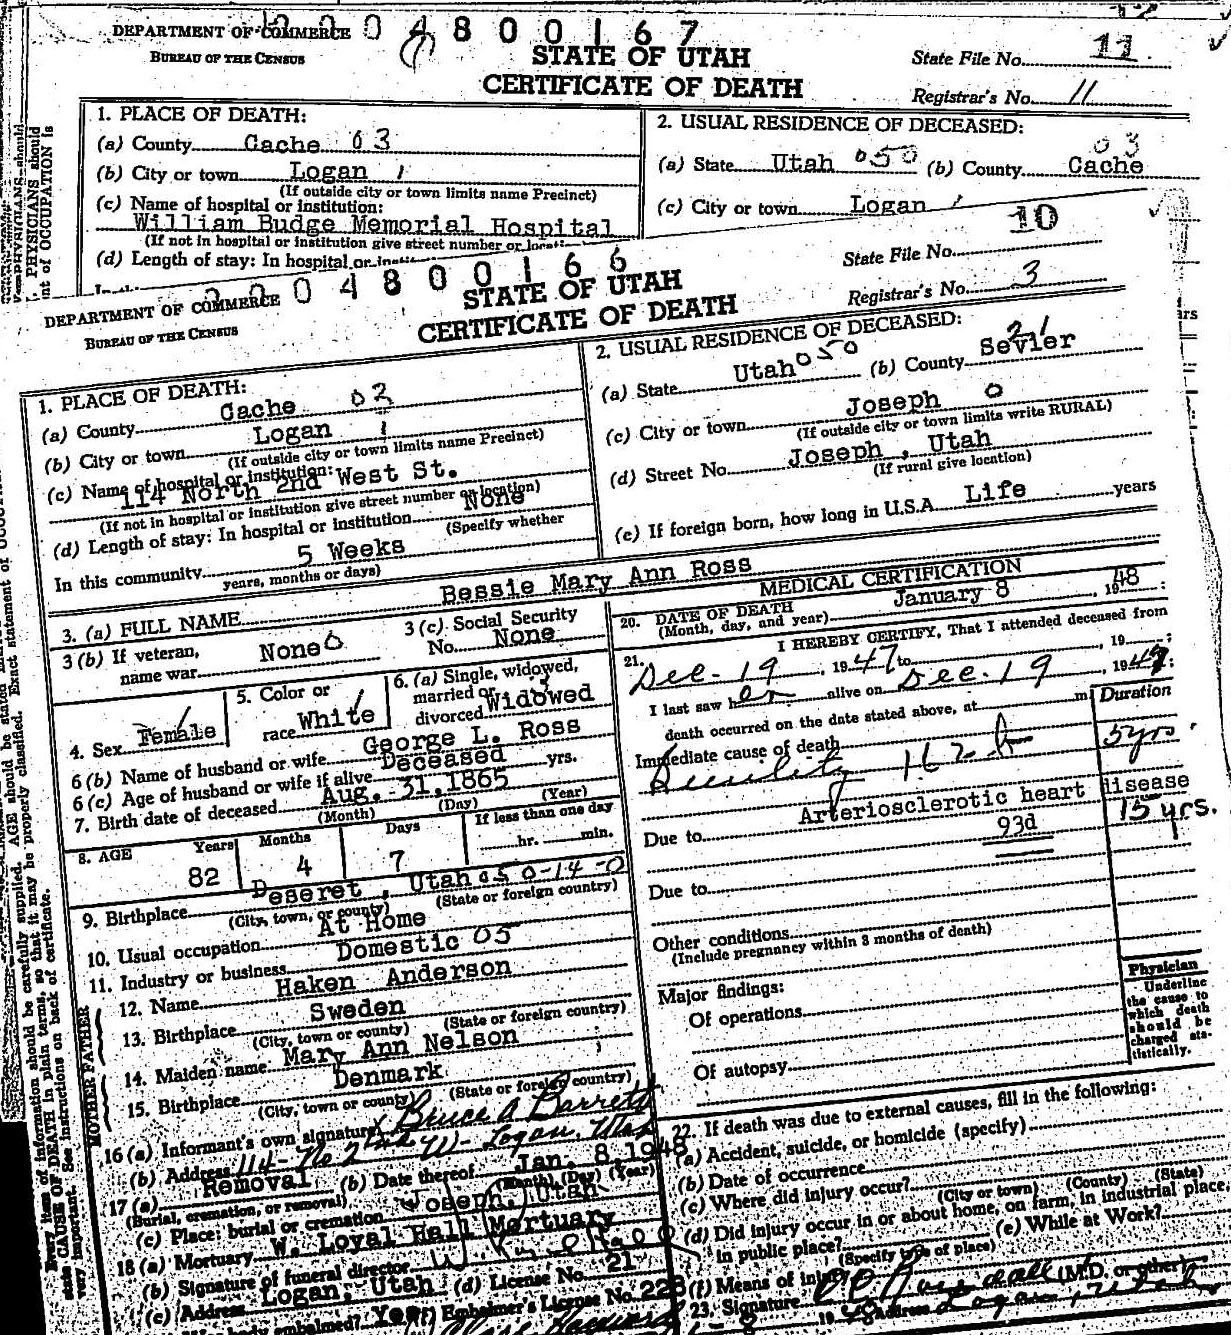 DEPARTMENT OF COMMERCE 0 4 8 0 0 1 6 7
BUREAU OF THE CENSUS
STATE OF UTAH
CERTIFICATE OF DEATH
State File No. 11
Registrar's No. 11
1. PLACE OF DEATH:
(a) County Cache 03
(b) City or town Logan 1
(If outside city or town limits name Precinct)
(c) Name of hospital or institution:
William Budge Memorial Hospital
(If not in hospital or institution give street number or location
(d) Length of stay: In hospital or
2. USUAL RESIDENCE OF DECEASED:
(a) State Utah 050 (b) County Cache 03
(c) City or town Logan 1
PHYSICIANS should
nt of OCCUPATION is
DEPARTMENT OF COMMERCE 0 4 8 0 0 1 6 6
BUREAU OF THE CENSUS
STATE OF UTAH
CERTIFICATE OF DEATH
State File No. 10
Registrar's No. 3
1. PLACE OF DEATH:
(a) County Cache 02
(b) City or town Logan 1
(If outside city or town limits name Precinct)
(c) Name of hospital or institution:
114 North 2nd West St.
(If not in hospital or institution give street number or location)
(d) Length of stay: In hospital or institution None
(Specify whether
In this community 5 Weeks
years, months or days)
2. USUAL RESIDENCE OF DECEASED:
(a) State Utah 050 (b) County Sevier 21
(c) City or town Joseph 0
(If outside city or town limits write RURAL)
(d) Street No. Joseph, Utah
(If rural give location)
(e) If foreign born, how long in U.S.A. Life years
3. (a) FULL NAME Bessie Mary Ann Ross
3 (b) If veteran, name war None 0
3 (c) Social Security No. None
4. Sex Female 1
5. Color or race White 1
6. (a) Single, widowed, married or divorced Widowed
6 (b) Name of husband or wife George L. Ross
6 (c) Age of husband or wife if alive Deceased yrs.
7. Birth date of deceased Aug. 31, 1865
(Month) (Day) (Year)
8. AGE Years 82 Months 4 Days 7 If less than one day hr. min.
9. Birthplace Deseret, Utah 050-14-0
(City, town, or county) (State or foreign country)
10. Usual occupation At Home
11. Industry or business Domestic 05
FATHER
12. Name Haken Anderson
13. Birthplace Sweden
(City, town or county) (State or foreign country)
MOTHER
14. Maiden name Mary Ann Nelson
15. Birthplace Denmark
(City, town or county) (State or foreign country)
16 (a) Informant's own signature Bruce A Barrett
(b) Address 114 - No 2nd W - Logan, Utah
17 (a) Removal (b) Date thereof Jan. 8, 1948
(Burial, cremation, or removal) (Month) (Day) (Year)
(c) Place: burial or cremation Joseph, Utah
18 (a) Mortuary W. Loyal Hall Mortuary
(b) Signature of funeral director
(c) Address Logan, Utah (d) License No. 21
body embalmed? Yes (f) Embalmer's License No. 228
MEDICAL CERTIFICATION
20. DATE OF DEATH
(Month, day, and year) January 8, 1948
21. I HEREBY CERTIFY, That I attended deceased from
Dec - 19, 1947 to , 19 ;
I last saw her alive on Dec. 19, 1947;
death occurred on the date stated above, at m
Duration
Immediate cause of death 5 yrs.
162 b
Due to Arteriosclerotic heart disease 15 yrs.
93d
Due to
Other conditions
(Include pregnancy within 3 months of death)
Major findings:
Of operations
Of autopsy
Physician
Underline the cause to which death should be charged statistically.
22. If death was due to external causes, fill in the following:
(a) Accident, suicide, or homicide (specify)
(b) Date of occurrence
(c) Where did injury occur?
(City or town) (County) (State)
(d) Did injury occur in or about home, on farm, in industrial place, in public place?
(Specify type of place) (e) While at Work?
(f) Means of injury
23. Signature (M.D. or other)
1-8 1948 Address Logan, Utah
Every item of information should be carefully supplied. AGE should be stated
state CAUSE OF DEATH in plain terms, so that it may be properly classified. Exact statement of
very important. See instructions on back of certificate.